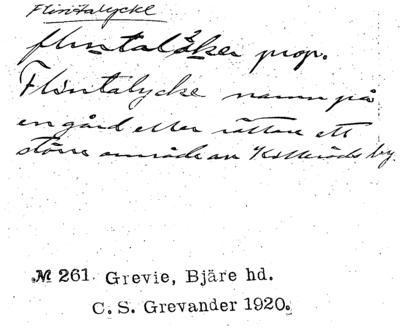 Flintalycke
flintalö̀kea prop.
Flintalycke namn på
en gård eller rättare ett
större område av Killeröds by.
№ 261. Grevie, Bjäre hd.
C. S. Grevander 1920.